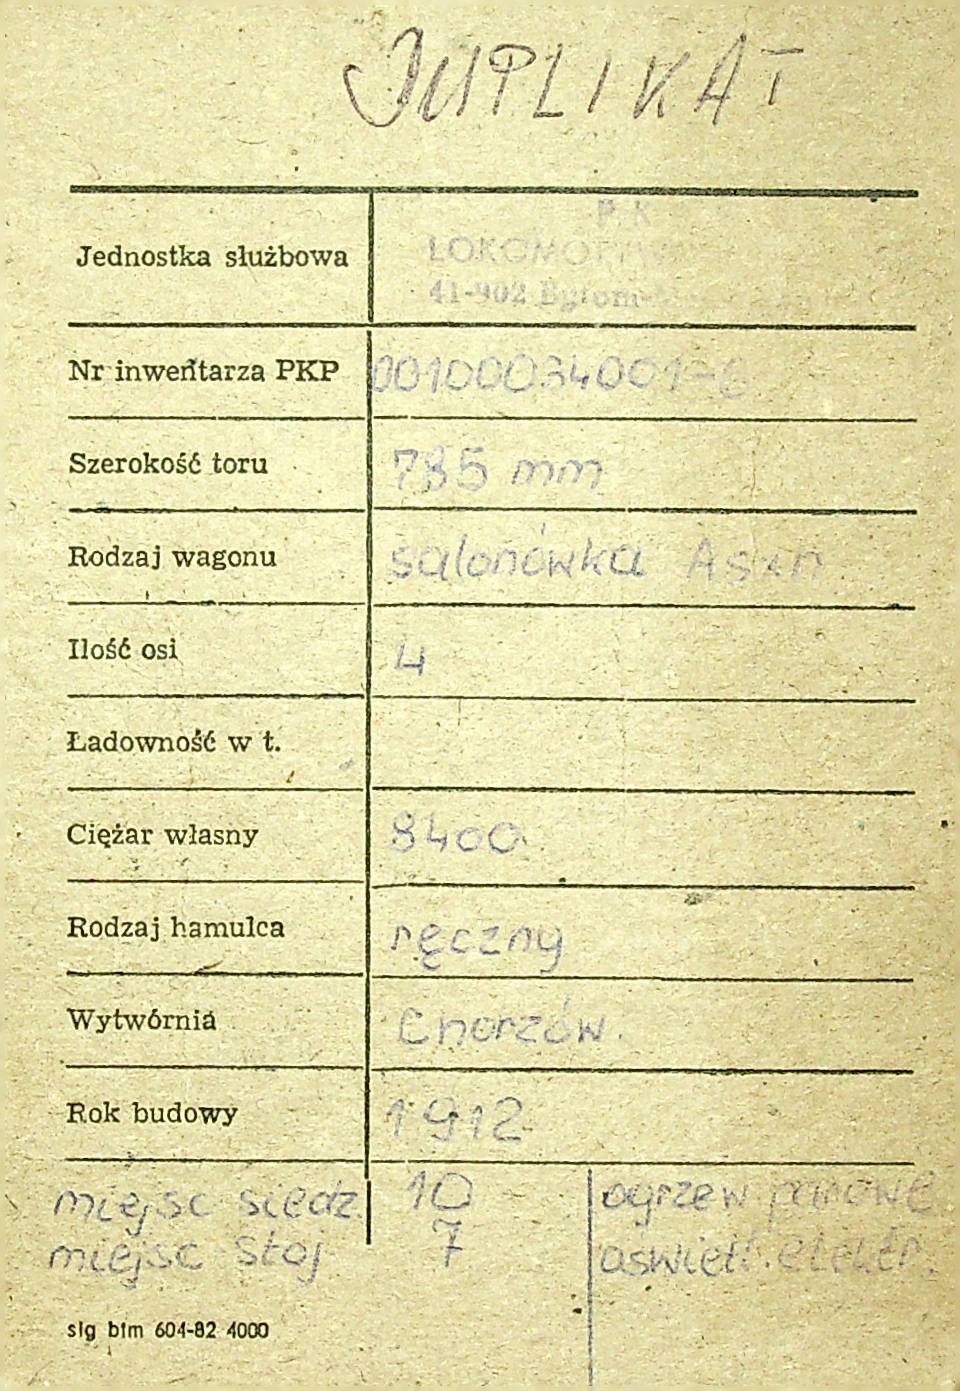 DUPLIKAT
Jednostka służbowa
P K
LOKOMOTYW
41-902 Bytom
Nr inwentarza PKP 00100034001-6
Szerokość toru 785 mm
Rodzaj wagonu salonówka
Ilość osi 4
Ładowność w t.
Ciężar własny 8400
Rodzaj hamulca ręczny
Wytwórnia Chorzów.
Rok budowy 1912
miejsc siedz. 10 ogrzew parowe
miejsc stoj 7 oświetl. elektr.
slg btm 604-82 4000